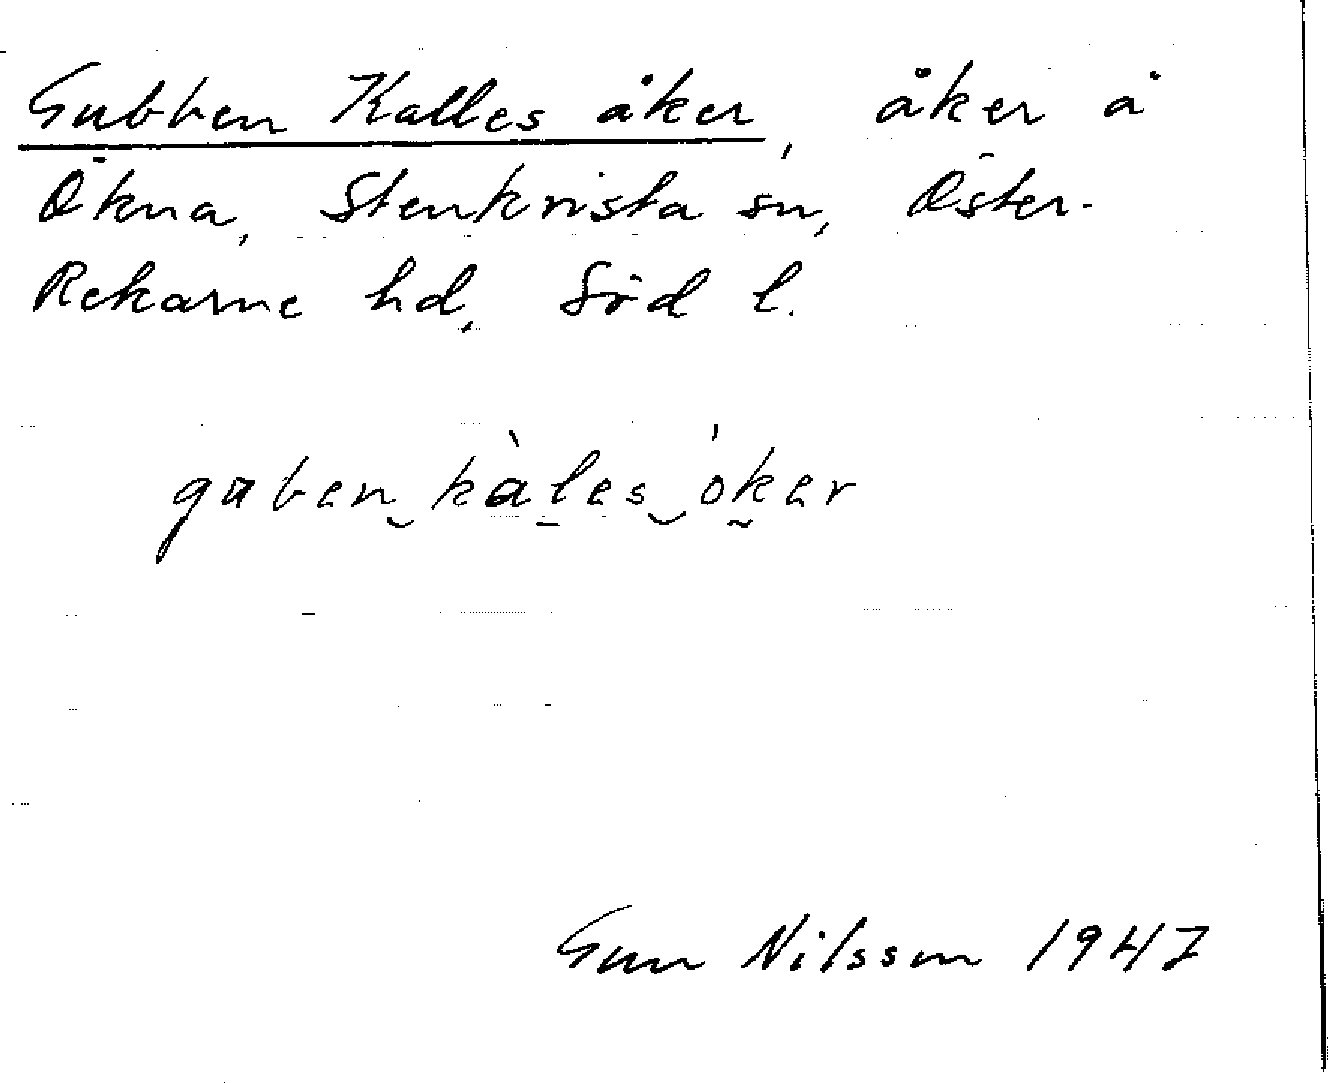 Gubben Kalles åker, åker å
Ökna, Stenkvista sn, Öster-
Rekarne hd, Söd l.
guben kàles óker
Gun Nilsson 1947